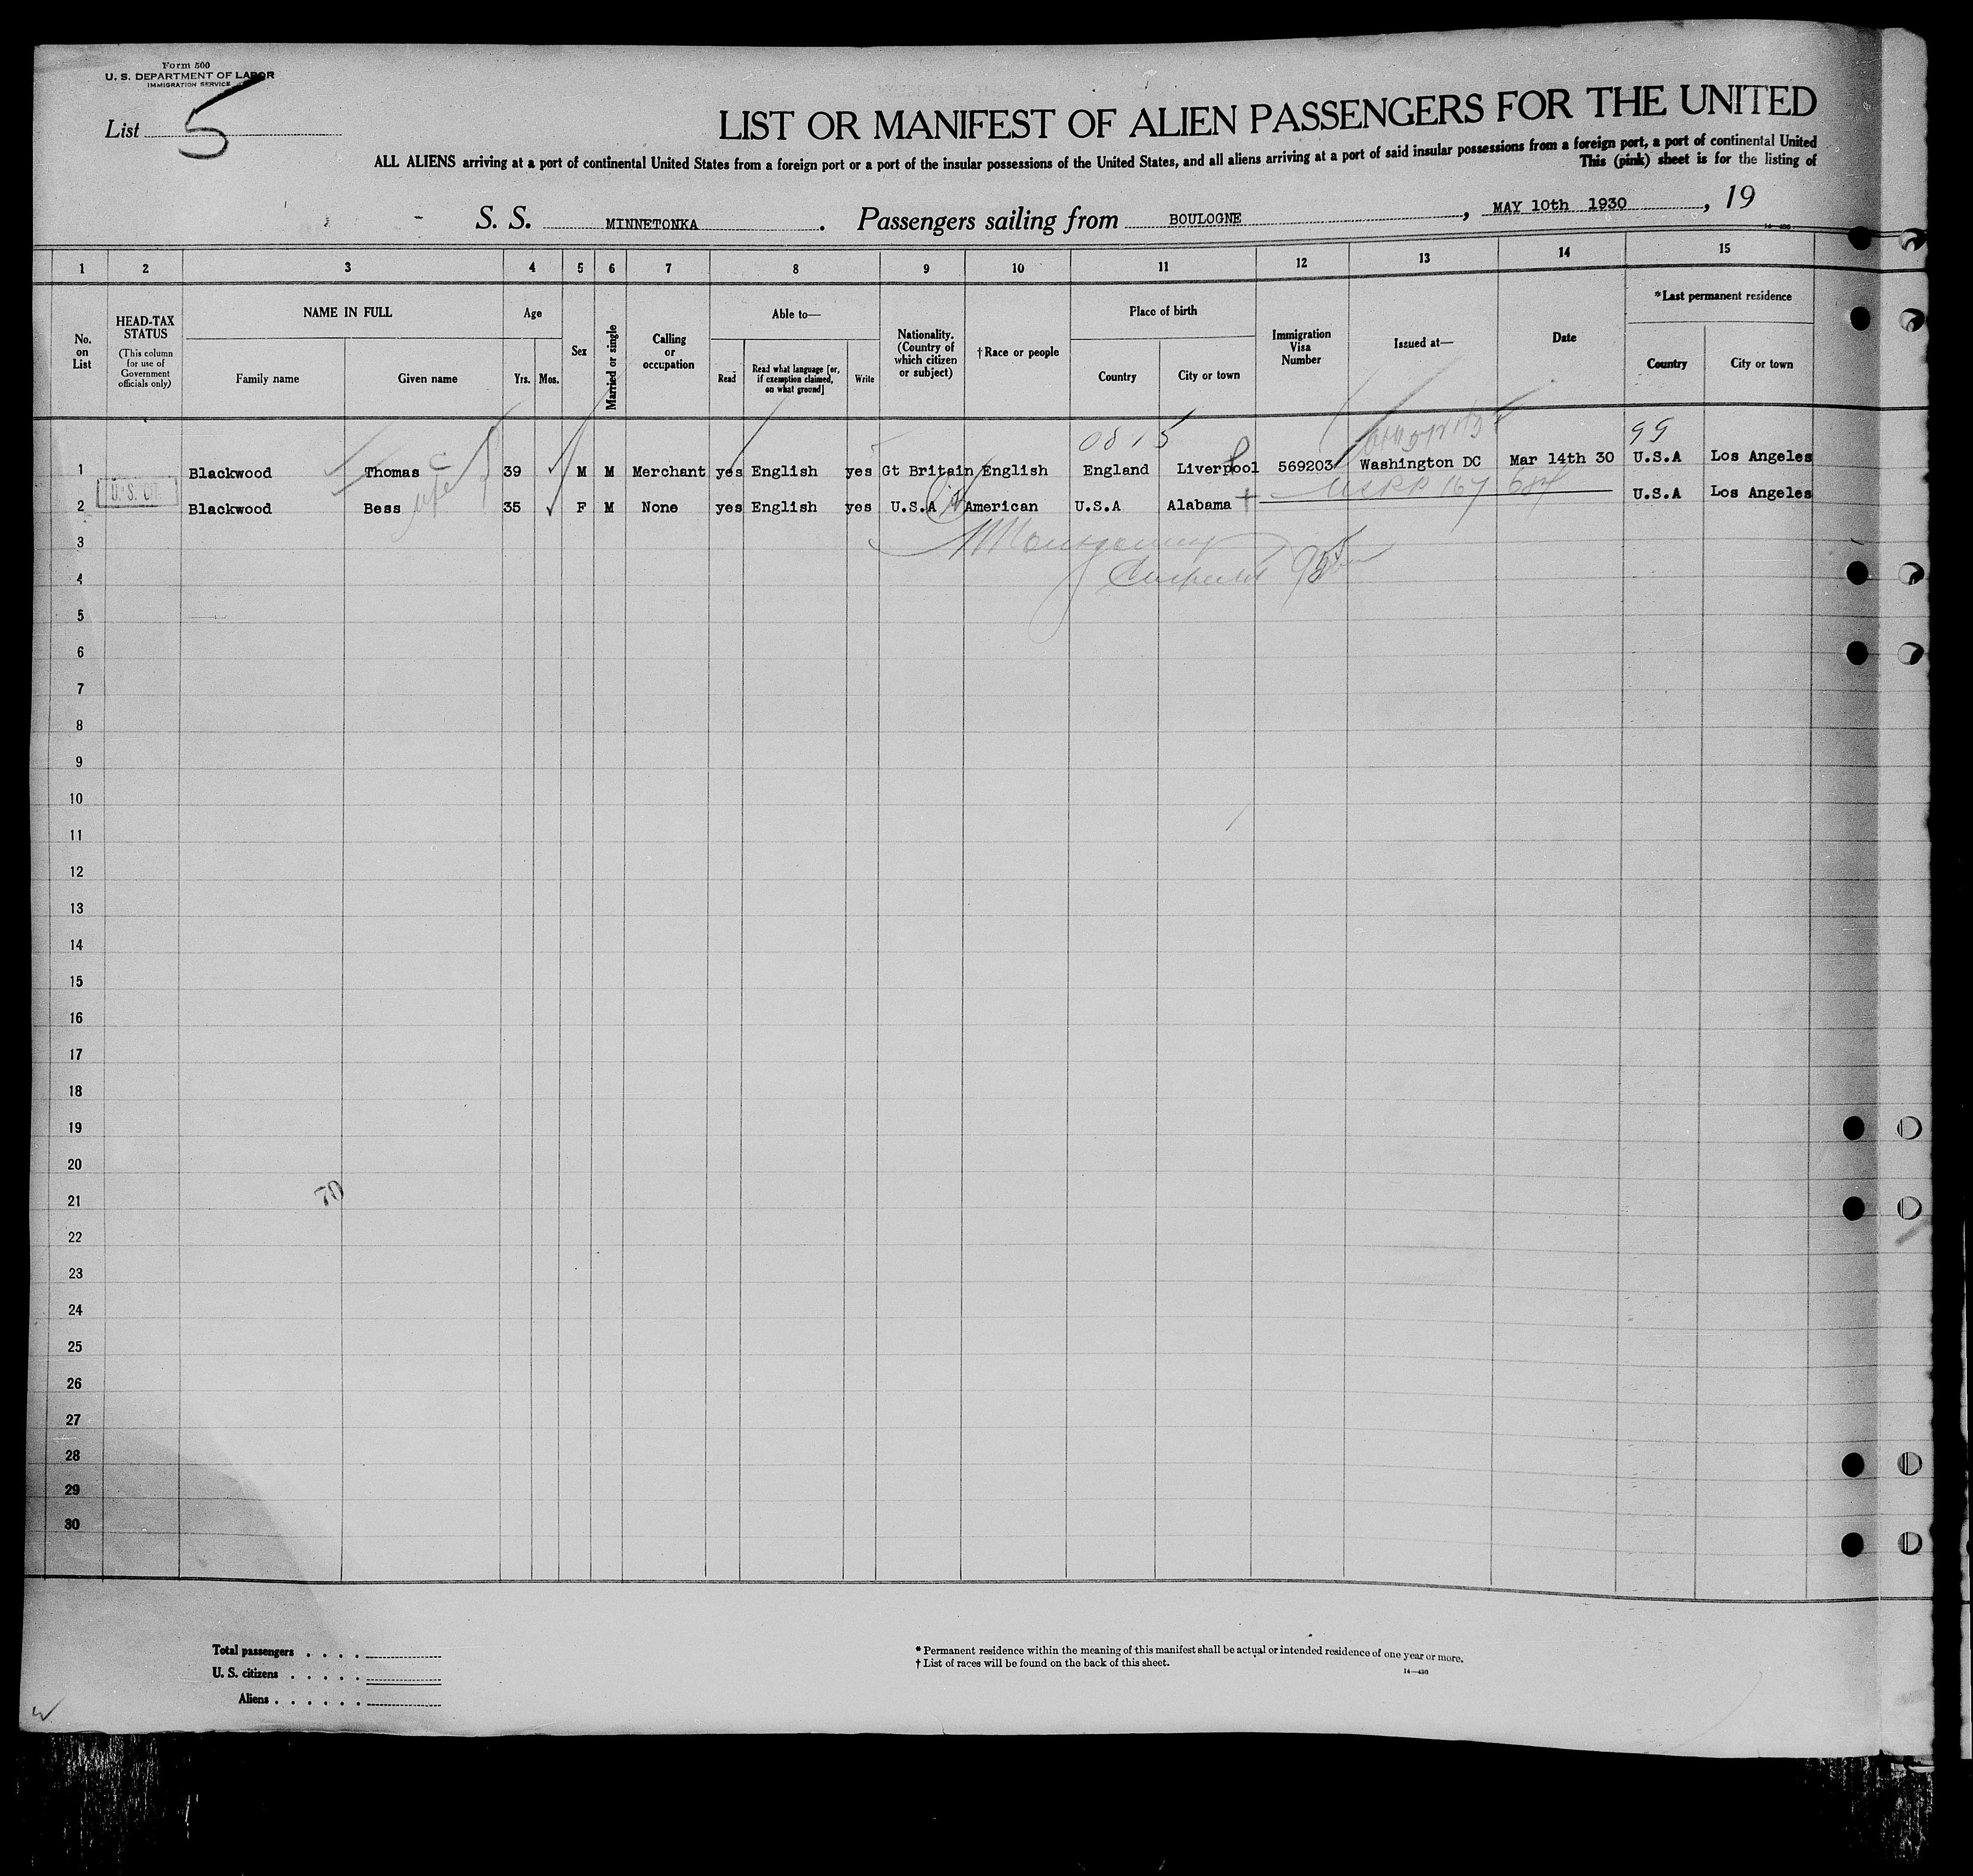 Form 500
U. S. DEPARTMENT OF LABOR
IMMIGRATION SERVICE
List 5
LIST OR MANIFEST OF ALIEN PASSENGERS FOR THE UNITED
ALL ALIENS arriving at a port of continental United States from a foreign port or a port of the insular possessions of the United States, and all aliens arriving at a port of said insular possessions from a foreign port, a port of continental United
This (pink) sheet is for the listing of
S. S. MINNETONKA. Passengers sailing from BOULOGNE, MAY 10th 1930, 19
1 2 3 4 5 6 7 8 9 10 11 12 13 14 15
No. on List
HEAD-TAX STATUS
(This column for use of Government officials only)
NAME IN FULL
Family name Given name
Age
Yrs. Mos.
Sex
Married or single
Calling or occupation
Able to—
Read Read what language [or, if exemption claimed, on what ground] Write
Nationality. (Country of which citizen or subject)
†Race or people
Place of birth
Country City or town
Immigration Visa Number
Issued at—
Date
*Last permanent residence
Country City or town
0815 99
1 Blackwood Thomas C 39 M M Merchant yes English yes Gt Britain English England Liverpool 569203 Washington DC Mar 14th 30 U.S.A Los Angeles
U.S. CIT.
2 Blackwood Bess wife 35 F M None yes English yes U.S.A American U.S.A Alabama U.S.A Los Angeles
3
Montgomery
4
5
6
7
8
9
10
11
12
13
14
15
16
17
18
19
20
70
21
22
23
24
25
26
27
28
29
30
Total passengers . . . .
U. S. citizens . . . . .
Aliens . . . . . .
* Permanent residence within the meaning of this manifest shall be actual or intended residence of one year or more.
† List of races will be found on the back of this sheet.
14—430